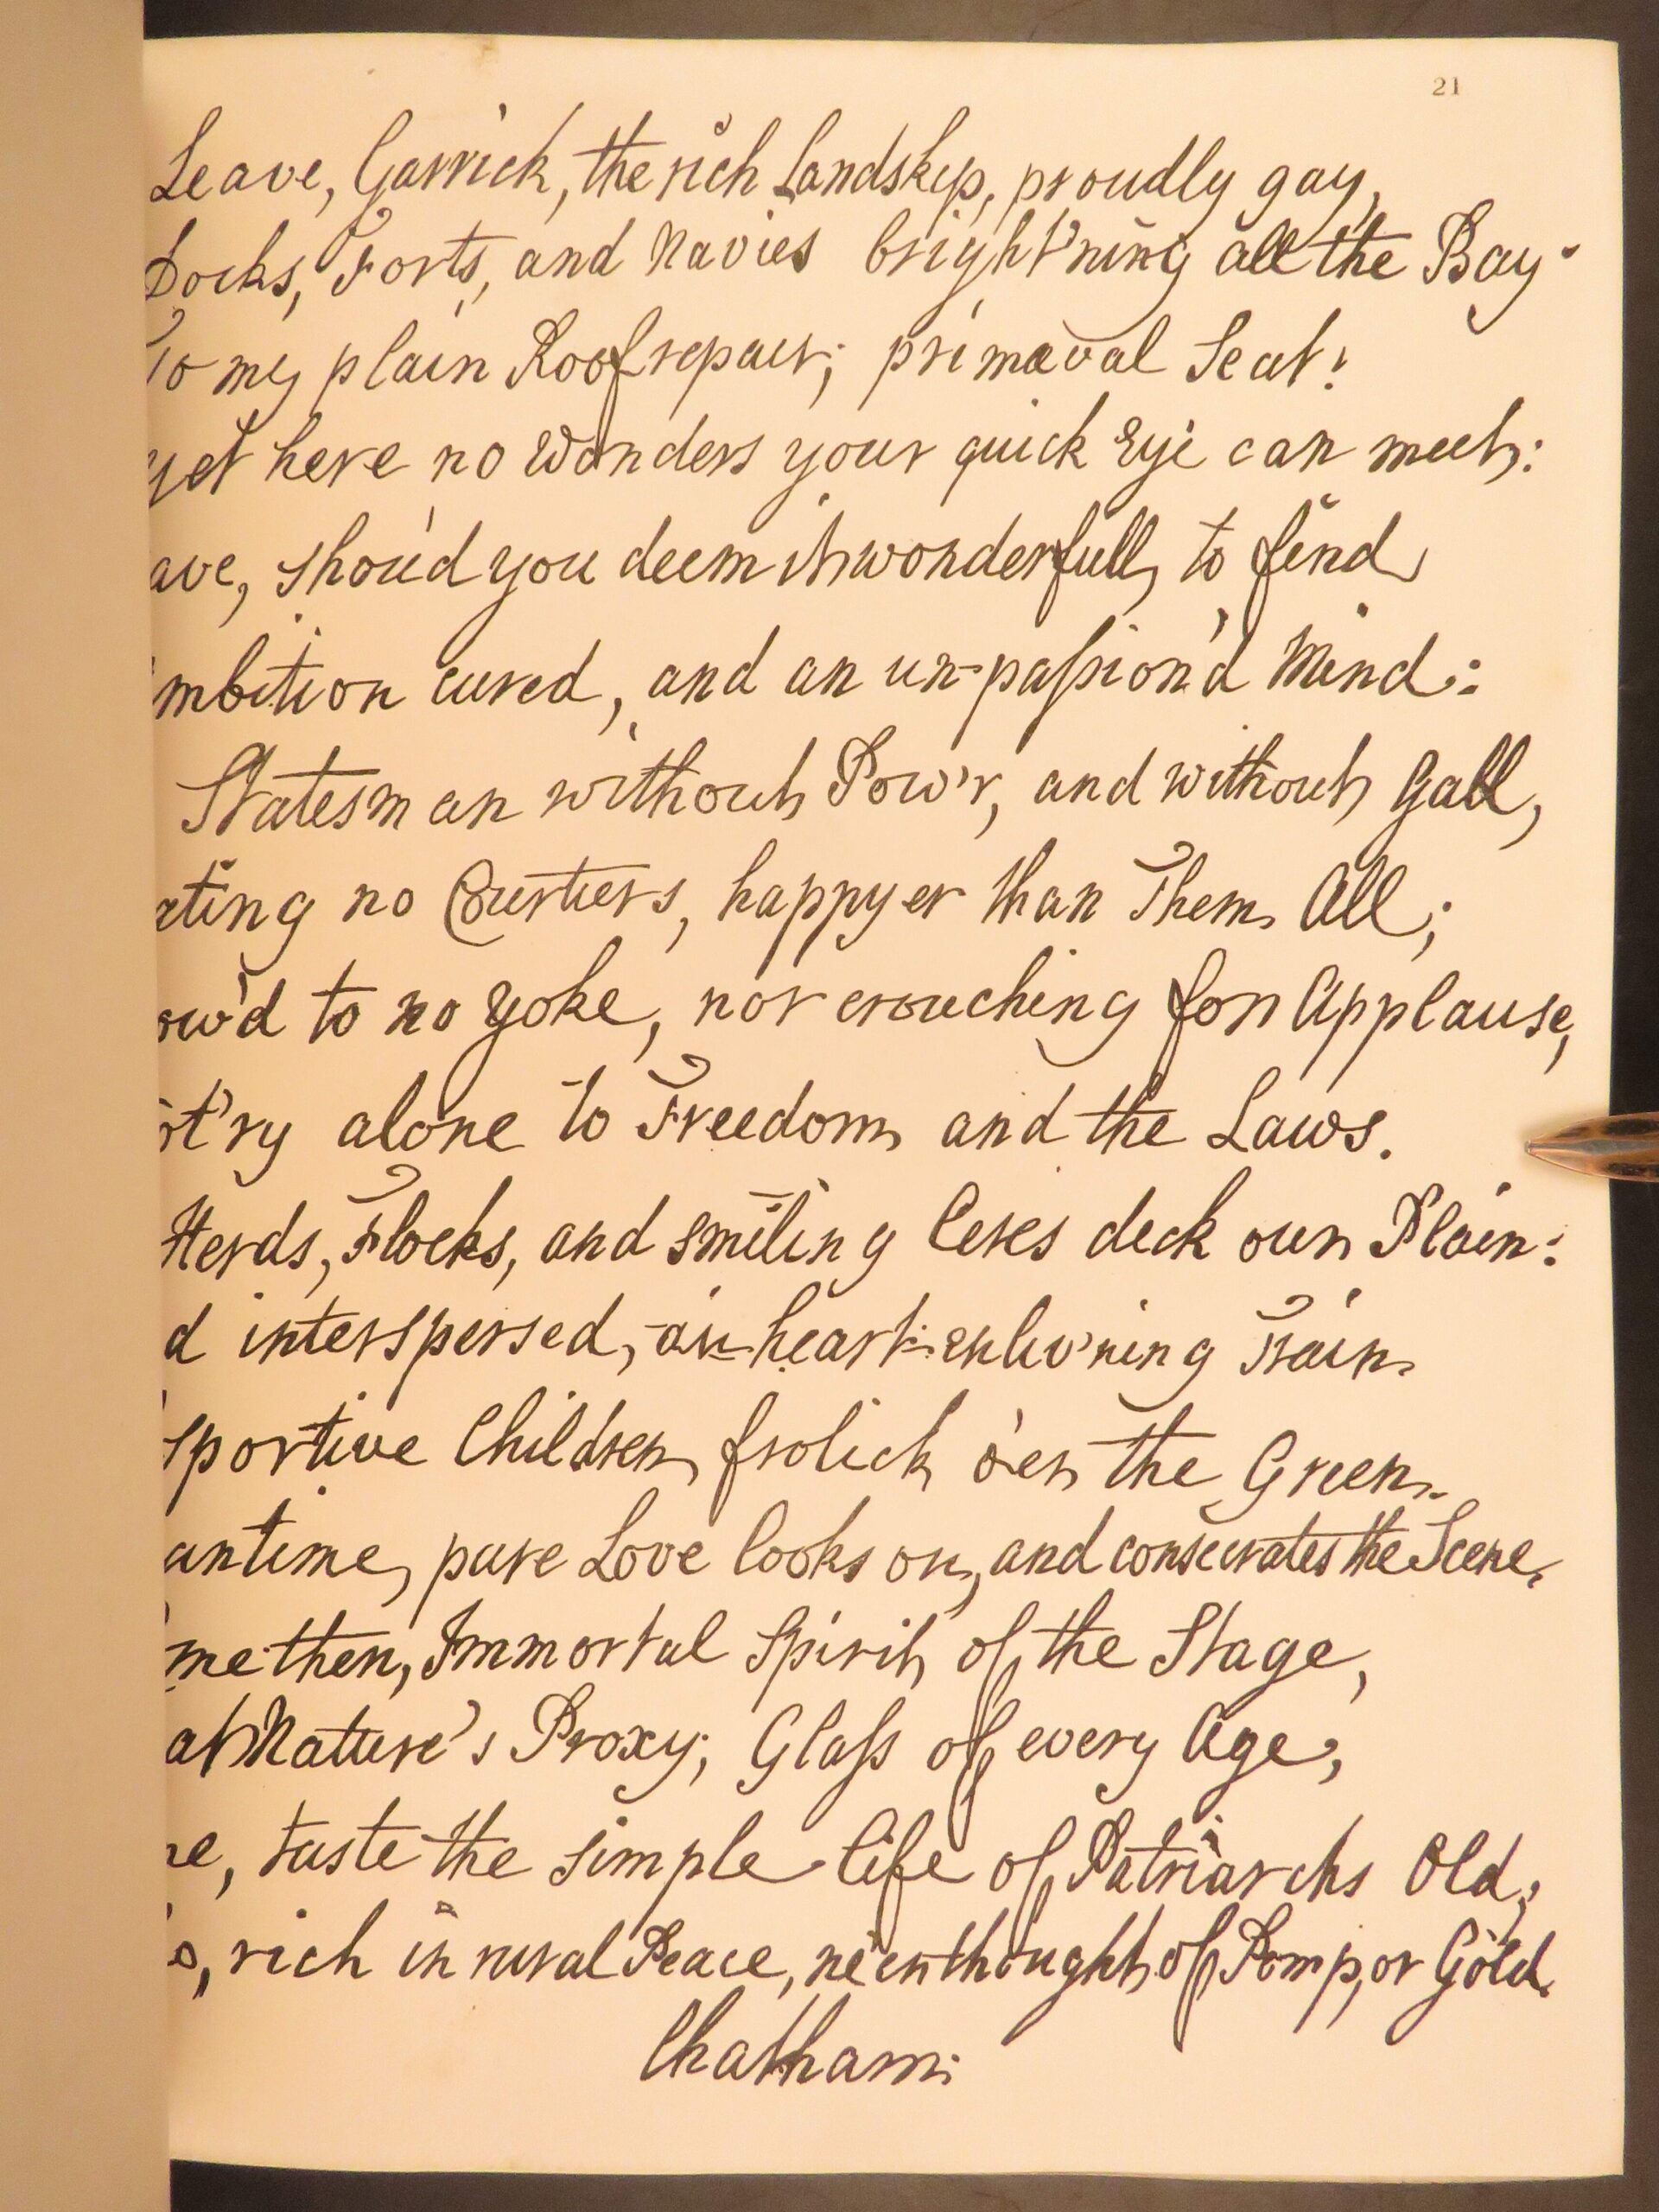 21
Leave, Garrick, the rich Landskip, proudly gay,
Docks, Forts, and Navies bright'ning all the Bay.
To my plain Roof repair; primæval Seat!
yet here no Wonders your quick Eye can meet:
ave, shou'd you deem it wonderfull to find
mbition cured, and an un-passion'd Mind:
Statesman without Pow'r, and without Gall,
ating no Courtiers, happyer than Them All;
ow'd to no yoke, nor crouching for Applause,
ot'ry alone to Freedom and the Laws.
Herds, Flocks, and smiling Ceres deck our Plain:
d interspersed, an heart-enliv'ning Train
Sportive Children frolick o'er the Green.
antime, pure Love looks on, and consecrates the Scene.
me then, Immortal Spirit of the Stage,
at Nature's Proxy; Glass of every Age;
ne, taste the simple life of Patriarchs Old,
o, rich in rural Peace, ne'er thought of Pomp, or Gold.
Chatham